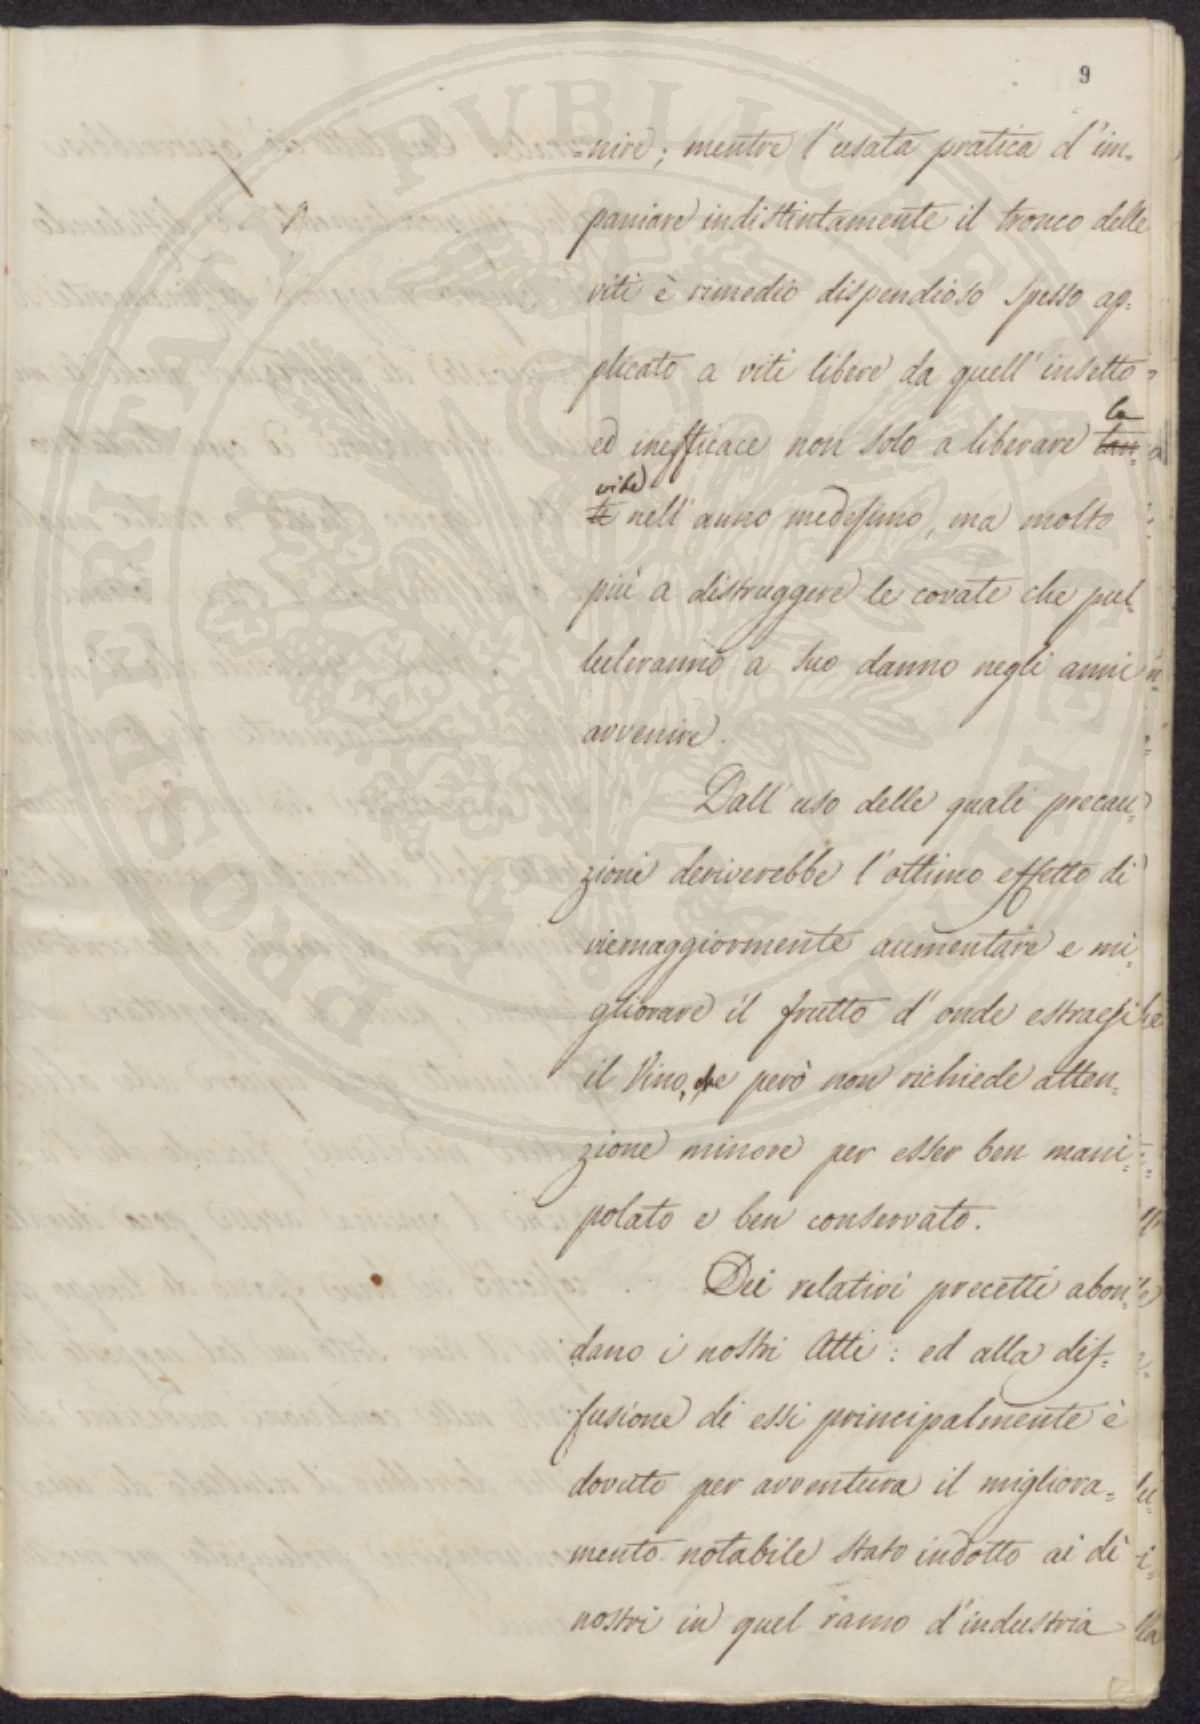 9
=nire; mentre l'usata pratica d'im=
paniare indistintamente il tronco delle
viti è rimedio dispendioso spesso ap=
plicato a viti libere da quell'insetto
ed inefficace non solo a liberare la
vite nell'anno medesimo, ma molto
più a distruggere le covate che pul=
luleranno a suo danno negli anni
avvenire.
Dall'uso delle quali precau=
zioni deriverebbe l'ottimo effetto di
viemaggiormente aumentare e mi=
gliorare il frutto d'onde estraesi
il Vino, che però non richiede atten=
zione minore per esser ben mani=
polato e ben conservato.
Dei relativi precetti abon=
dano i nostri Atti: ed alla dif=
fusione di essi principalmente è
dovuto per avventura il migliora=
mento notabile stato indotto ai dì
nostri in quel ramo d'industria
PROSPERITATI PUBLICAE AUGENDAE